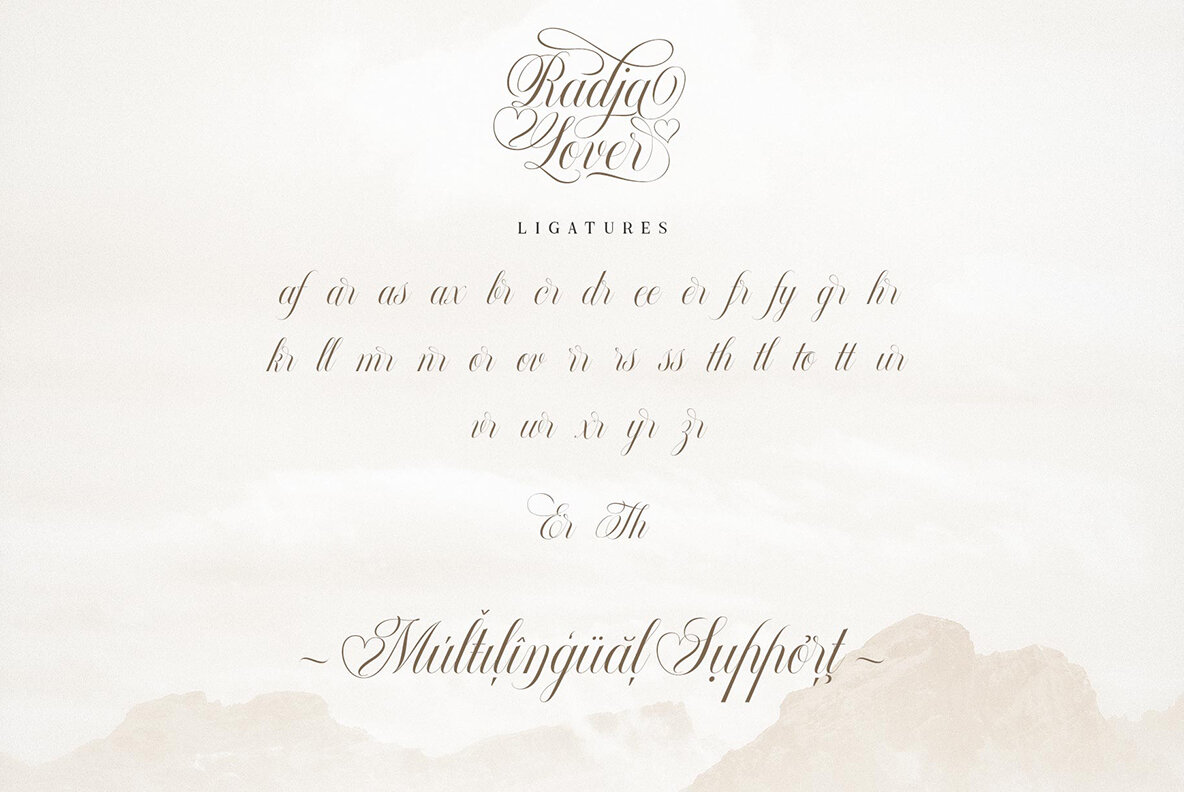 Radja
Lover
LIGATURES
af ar as ax br cr dr ee er fr fy gr hr
kr ll mr nr or ov rr rs ss th tl to tt ur
vr wr xr yr zr
Er Th
~ Múľŧıļîņģüăļ Sụppơŗţ ~